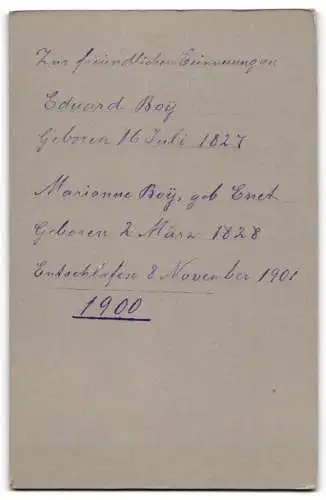 Zur freundlichen Erinnerung an
Eduard Boÿ
Geboren 16 Juli 1827
Marianne Boÿ, geb
Geboren 2 März 1828
Entschlafen 8 November 1901
1900